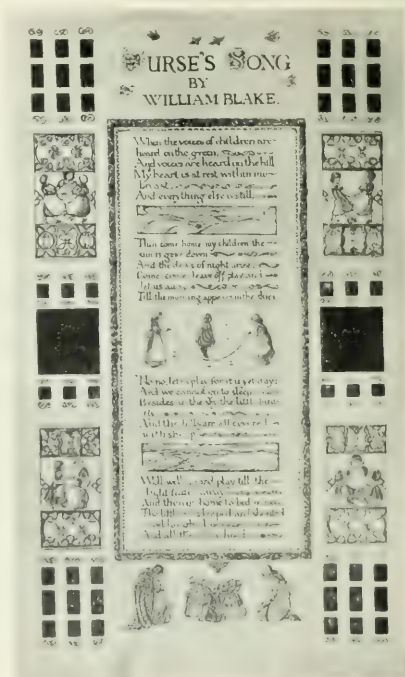 NURSE'S SONG
BY
WILLIAM BLAKE.
When the voices of children are
heard on the green,
And voices are heard on the hill
My heart is at rest within my
And everything else is still.
Then come home my children the
sun is gone down
And the dews of night arise
Come come leave off play and
let us away
Till the morning appears in the skies
No no let us play for it is yet day
And we cannot go to sleep
Besides in the sky the little birds
fly
And the hills are all covered
with sheep
Well well and play till the
light fades away
And then go home to bed
The little leaped and shouted
and laughed
And all the